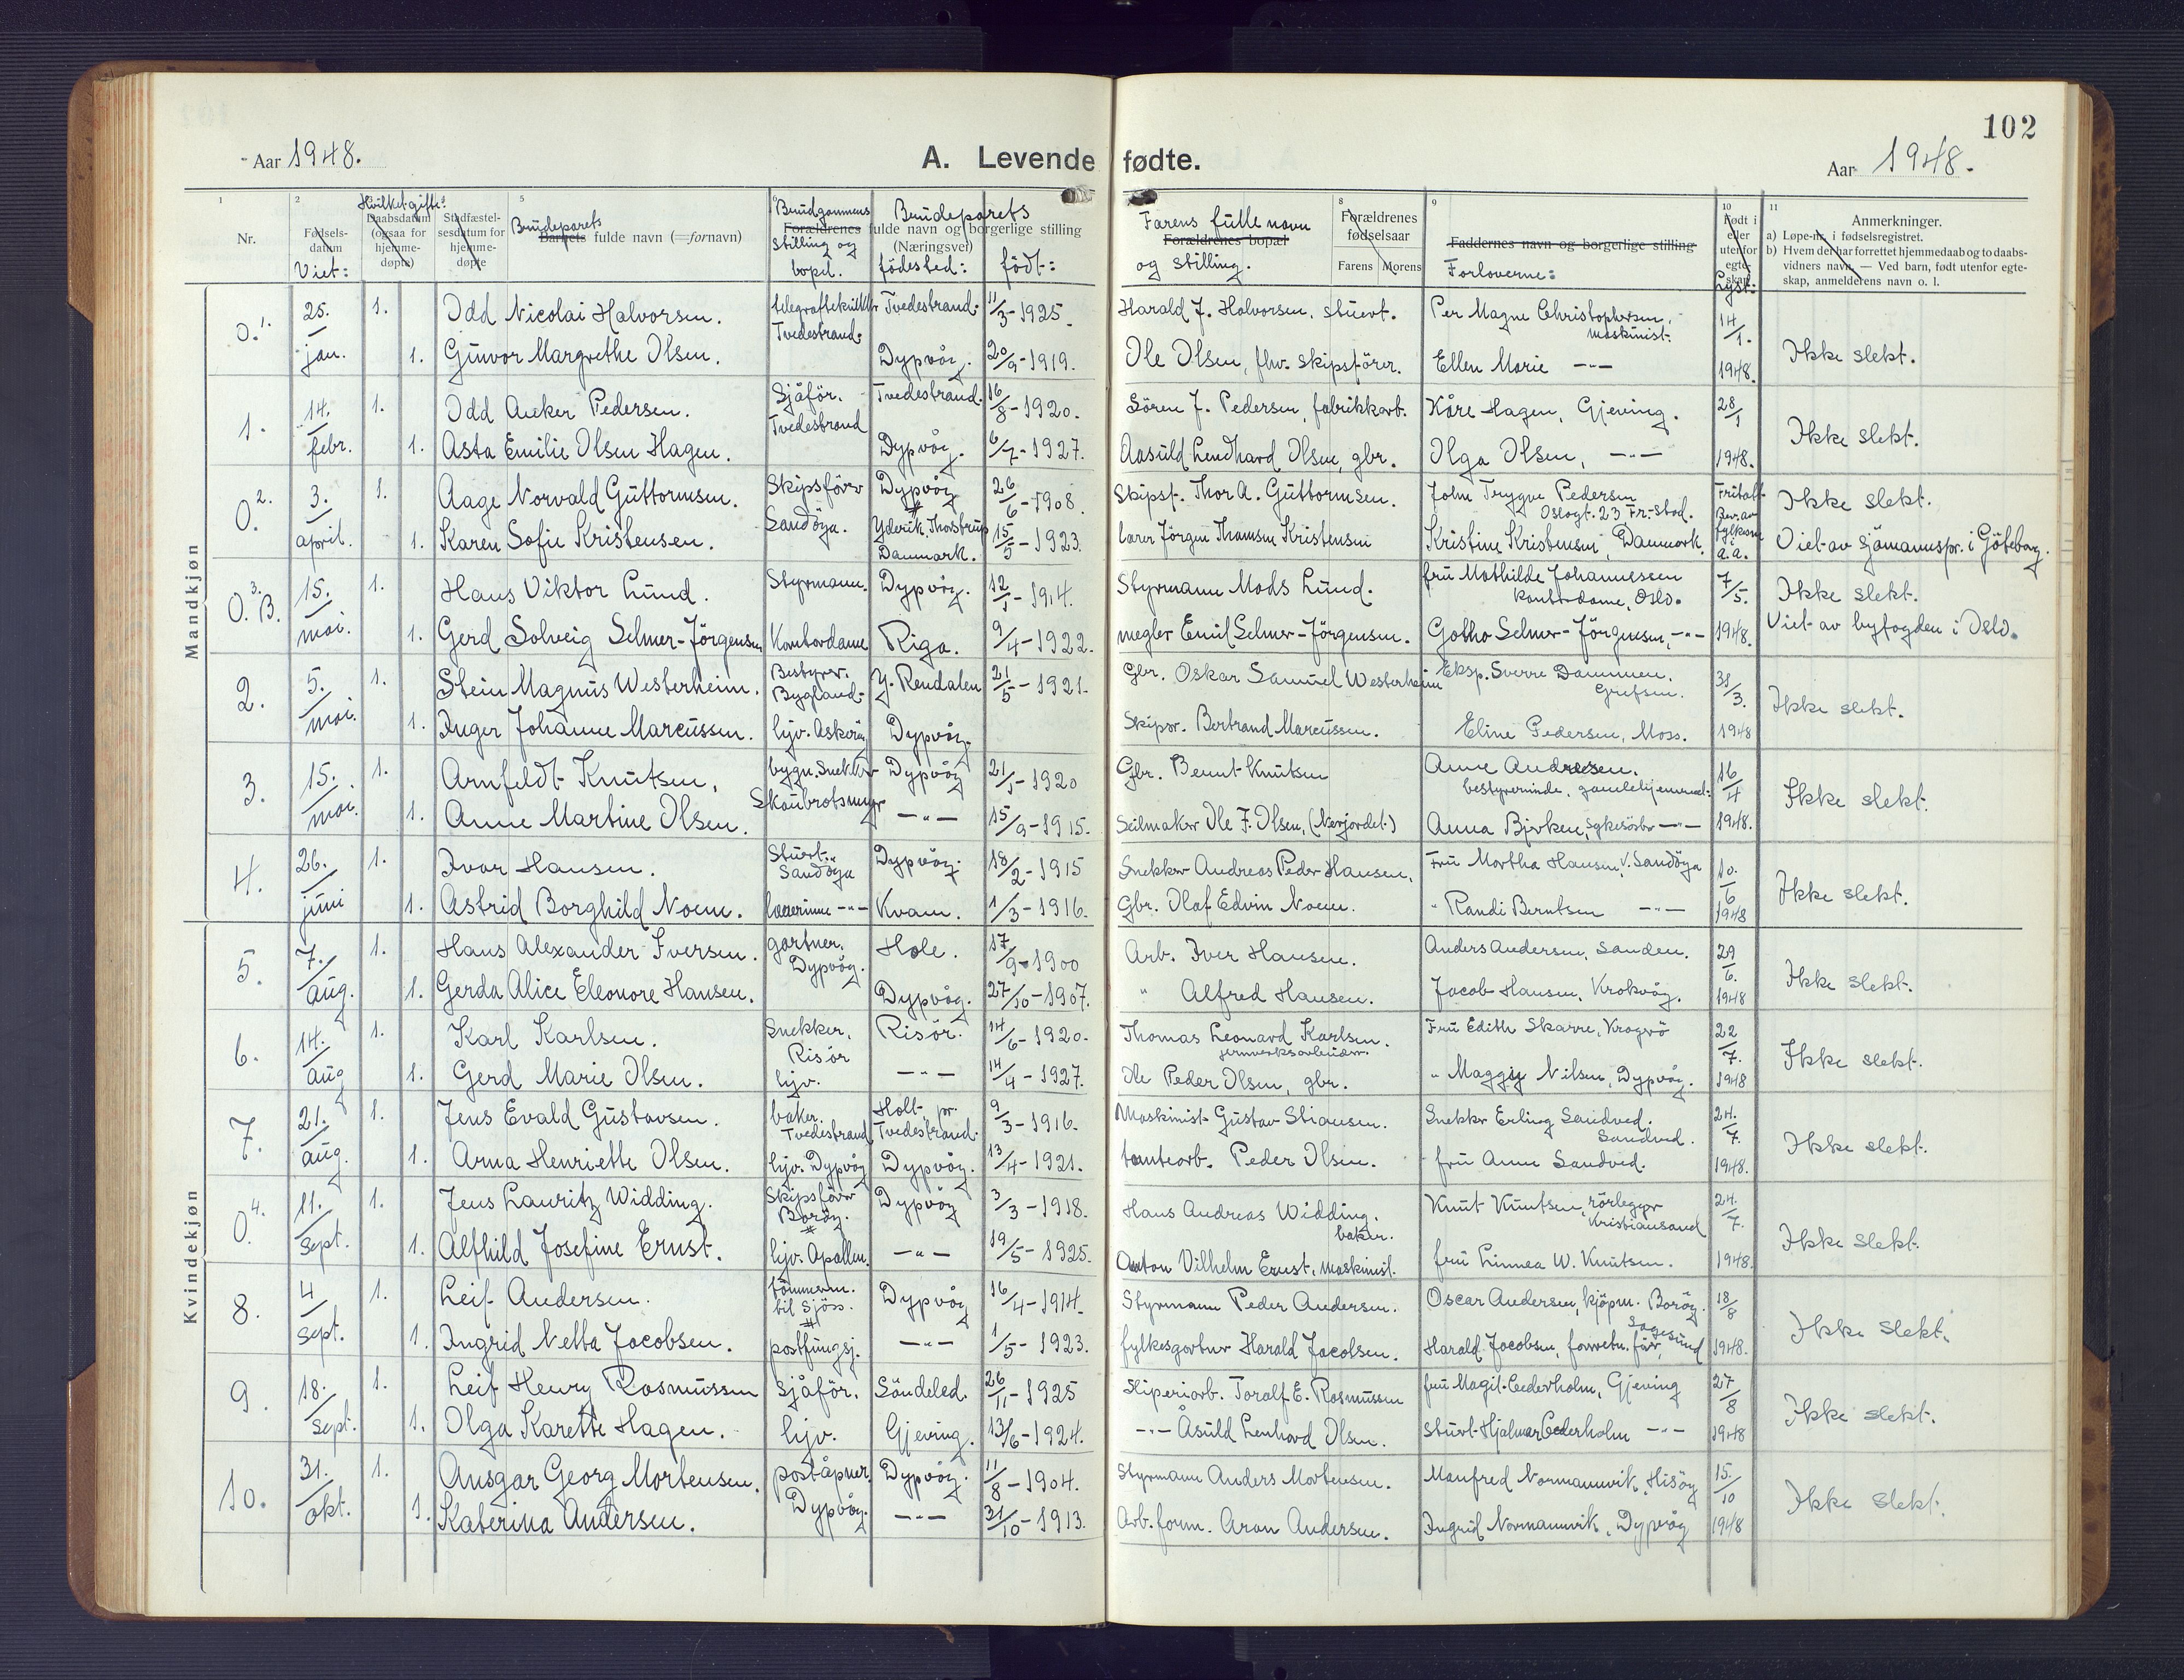 102
Aar 1948.
A. Levende fødte.
Aar 1948.
1 2 Hvilket gifte: 5 8 9 10 11
Nr.
Fødsels-
datum
Viet:
Daabsdatum
(ogsaa for
hjemme-
døpte)
Stadfæstel-
sesdatum for
hjemme-
døpte
Brudeparets
Barnets fulde navn (=fornavn)
Brudgommens
stilling og
bopel.
Brudeparets
Forældrenes fulde navn og borgerlige stilling
(Næringsvei)
födested: födt:
Farens fulle navn
Forældrenes bopæl
og stilling.
Forældrenes
fødselsaar
Farens Morens
Faddernes navn og borgerlige stilling
Forloverne:
Født i
eller
utenfor
egte-
skap
Lyst:
Anmerkninger.
a) Løpe-nr. i fødselsregistret.
b) Hvem der har forrettet hjemmedaab og to daabs-
vidners navn. — Ved barn, født utenfor egte-
skap, anmelderens navn o. l.
Mandkjøn
Kvindekjøn
0.1. 25./jan. 1. Odd Nicolai Halvorsen. Tvedestrand. Tvedestrand. 11/3-1925. Harald J. Halvorsen, stuert. Per Magne Christophersen, maskinist. 14/1. 1948. Ikke slekt.
1. Gunvor Margrethe Olsen. Dypvåg. 20/9-1919. Ole Olsen, fhv. skipsförer. Ellen Marie -"-
1. 14./febr. 1. Odd Anker Pedersen. Sjåför. Tvedestrand Tvedestrand. 16/8-1920. Sören J. Pedersen, fabrikkarb. Kåre Hagen, Gjeving. 28/1 1948. Ikke slekt.
1. Asta Emilie Olsen Hagen. Dypvåg. 6/7-1927. Aasuld Lendhard Olsen, gbr. Olga Olsen, -"-
0.2. 3./april. 1. Aage Norvald Guttormsen. Skipsförer Sandöya. Dypvåg 26/6-1908. Skipsf. Thor A. Guttormsen. John Trygve Pedersen Oslogt. 23 Fr.-stad. Ikke slekt.
1. Karen Sofie Kristensen. Danmark. 15/5-1923. lærer Jörgen Thomsen Kristensen Kristine Kristensen, Danmark. Viet av sjömannspr. i Göteborg.
0.3.B. 15./mai. 1. Hans Viktor Lund. Styrmann. Dypvåg. 12/1-1914. Styrmann Mads Lund. fru Mathilde Johannessen kontordame, Oslo. 7/5. 1948. Ikke slekt.
1. Gerd Solveig Selmer-Jörgensen Kontordame Riga. 9/4-1922. megler Emil Selmer-Jörgensen. Gotho Selmer-Jörgensen, -"- Viet av byfogden i Oslo.
2. 5./mai. 1. Stein Magnus Westerheim. Bestyrer. Bygland. Y. Rendalen 21/5-1921. Gbr. Oskar Samuel Westerheim Eksp. Sverre Dammen. Grefsen. 31/3. 1948 Ikke slekt.
1. Inger Johanne Marcussen. hjv. Askerøy Dypvåg. Skipsr. Bertrand Marcussen. Eline Pedersen, Moss.
3. 15./mai. 1. Arnfeldt Knutsen. bygn. snekker Dypvåg 21/1-1920 Gbr. Bernt Knutsen Anne Andresen. bestyrerinde, gamlehjemmet. 16/4 1948. Ikke slekt.
1. Anne Martine Olsen. -"- 15/9-1915. Seilmaker Ole F. Olsen, (Nerjordet.) Anna Bjerken, sykesöster -"-
4. 26./juni 1. Ivar Hansen. Stuert. Sandöya Dypvåg. 18/2-1915 Snekker Andreas Peder Hansen. Fru Martha Hansen, V. Sandöya 10./6 1948 Ikke slekt.
1. Astrid Borghild Noem. lærerinne -"- Kvam. 1/3-1916. Gbr. Olaf Edvin Noem. " Randi Berntsen -"-
5. 7./aug. 1. Hans Alexander Iversen. gartner. Dypvåg. Hole. 17/9-1900 Arb. Iver Hansen. Anders Andersen, Sanden. 29/6. 1948 Ikke slekt.
1. Gerda Alice Eleonore Hansen. Dypvåg. 27/10-1907. " Alfred Hansen. Jacob Hansen, Krokvåg.
6. 14./aug 1. Karl Karlsen. Snekker, Risör Risör. 14/6-1920. Thomas Leonard Karlsen. jernverksarbeider. Fru Edith Skarre, Krogvö 22/7. 1948 Ikke slekt.
1. Gerd Marie Olsen. hjv. -"- 14/4-1927. Ole Peder Olsen, gbr. " Maggiy Nilsen, Dypvåg.
7. 21./aug. 1. Jens Evald Gustavsen. baker. Tvedestrand Holt, pr. Tvedestrand. 9/3-1916. Maskinist Gustav Stiansen. Snekker Erling Sandved. Sandved. 24./7. 1948. Ikke slekt.
1. Arna Henriette Olsen. hjv. Dypvåg Dypvåg. 13/4-1921. tomtearb. Peder Olsen. fru Anne Sandved.
0.4. 11./sept. 1. Jens Lauritz Widding. Skipsförer Boröy. Dypvåg 3/3-1918. Hans Andreas Widding. baker. Knut Knutsen, rörlegger Kristiansand 24./7. 1948. Ikke slekt.
1. Alfhild Josefine Ernst. hjv. Apallen. -"- 19/5-1925. Anton Vilhelm Ernst, maskinist. fru Linnea W. Knutsen.
8. 4/sept. 1. Leif Andersen. tömmerm. til sjöss. Dypvåg 16/4-1914. Styrmann Peder Andersen. Oscar Andersen, kjöpm. Boröy. 18/8 1948. Ikke slekt.
1. Ingrid Netta Jacobsen. postfungsj. -"- 1/5-1923. fylkesgartner Harald Jacobsen. Harald Jacobsen, forretn. för, Sagesund
9. 18./sept. 1. Leif Henry Rasmussen sjåför. Söndeled. 26/11-1925 Sliperiarb. Toralf E. Rasmussen fru Magit Cederholm, Gjeving 27/8 1948 Ikke slekt.
1. Olga Karette Hagen. hjv. Gjeving. 13/6-1924. -"- Åsuld Lenhard Olsen. Stuert Hjalmar Cederholm -"-
10. 31./okt. 1. Ansgar Georg Mortensen. poståpner. Dypvåg. Dypvåg. 11/8-1904. Styrmann Anders Mortensen. Manfred Normannvik, Hisöy 15./10 1948 Ikke slekt.
1. Katerina Andersen. -"- 31/10-1913. Arb. form. Aron Andersen. Ingrid Normannvik, Dypvåg